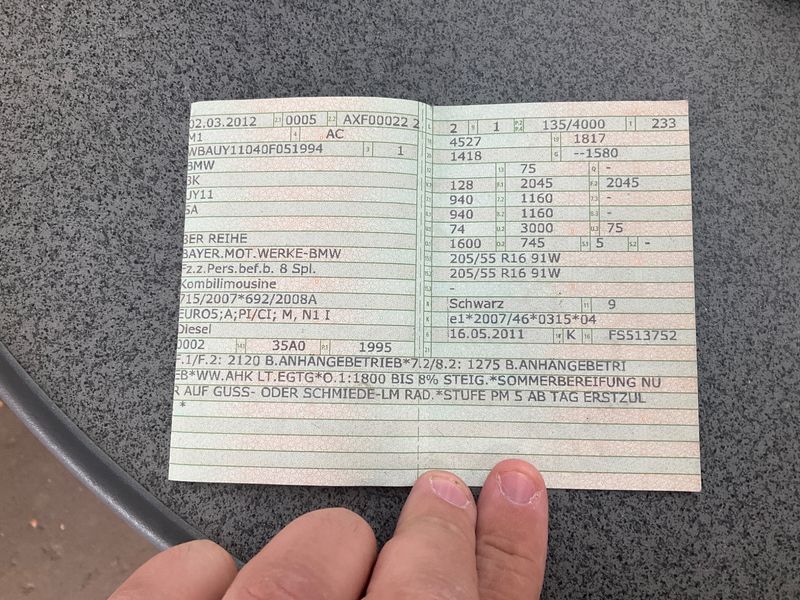 02.03.2012 0005 AXF00022 2
M1 AC
WBAUY11040F051994 1
BMW
3K
UY11
5A
3ER REIHE
BAYER.MOT.WERKE-BMW
Fz.z.Pers.bef.b. 8 Spl.
Kombilimousine
715/2007*692/2008A
EURO5;A;PI/CI; M, N1 I
Diesel
0002 35A0 1995
2 1 135/4000 233
4527 1817
1418 --1580
75 -
128 2045 2045
940 1160 -
940 1160 -
74 3000 75
1600 745 5 -
205/55 R16 91W
205/55 R16 91W
-
Schwarz 9
e1*2007/46*0315*04
16.05.2011 K FS513752
F.1/F.2: 2120 B.ANHANGEBETRIEB*7.2/8.2: 1275 B.ANHANGEBETRI
EB*WW.AHK LT.EGTG*O.1:1800 BIS 8% STEIG.*SOMMERBEREIFUNG NU
R AUF GUSS- ODER SCHMIEDE-LM RAD.*STUFE PM 5 AB TAG ERSTZUL
*